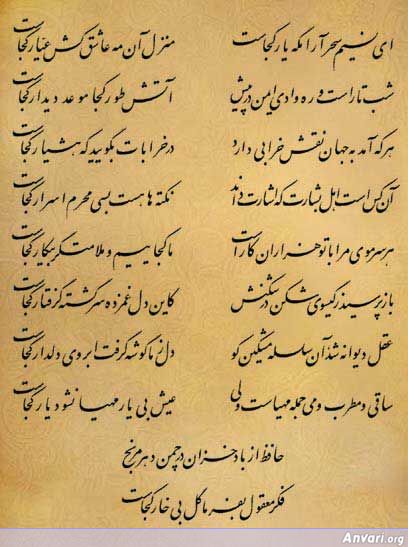 ای نسیم سحر آرامگه یار کجاست منزل آن مه عاشق کش عیار کجاست
شب تار است و ره وادی ایمن در پیش آتش طور کجا موعد دیدار کجاست
هر که آمد به جهان نقش خرابی دارد در خرابات بگویید که هشیار کجاست
آن کس است اهل بشارت که اشارت داند نکته ها هست بسی محرم اسرار کجاست
هر سر موی مرا با تو هزاران کار است ما کجاییم و ملامت گر بیکار کجاست
باز پرسید ز گیسوی شکن در شکنش کاین دل غمزده سرگشته گرفتار کجاست
عقل دیوانه شد آن سلسله مشکین کو دل ز ما گوشه گرفت ابروی دلدار کجاست
ساقی و مطرب و می جمله مهیاست ولی عیش بی یار مهیا نشود یار کجاست
حافظ از باد خزان در چمن دهر مرنج
فکر معقول بفرما گل بی خار کجاست
Anvari.org